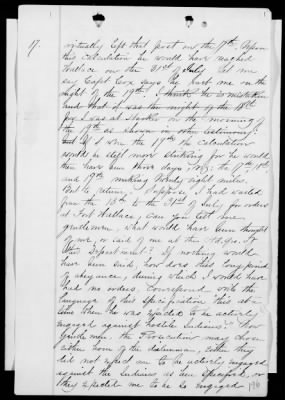 17.
virtually left that post on the 17th. Upon
this calculation he would have reached
Wallace on the 21st of July. Let me
say Capt. Cox says he passed me on the
night of the 19th. I think he is mistaken
and that it was the night of the 18th
for I was at Stockes on the morning of
the 19th as shown in other testimony:
but if I was the 19th the calculation
would be still more striking for he would
then have been three days, 17th, the 18th
and 19th making ninety eight miles.
But to return, Suppose I had waited
from the 13th to the 31st of July for orders
at Fort Wallace, can you tell me
gentlemen, what would have been thought
of me, or said of me at the Hd. Qrs. of
this Department? If nothing would
have been said, how does this long period
of abeyance, during which I would have
had no orders, correspond with the
language of this Specification "this at a
time when he was expected to be actively
engaged against hostile Indians". Now
gentlemen, the Prosecution may choose
either horn of the dilemma, either they
did not expect me to be actively engaged
against the Indians as then specified, or
they expected me to be so engaged